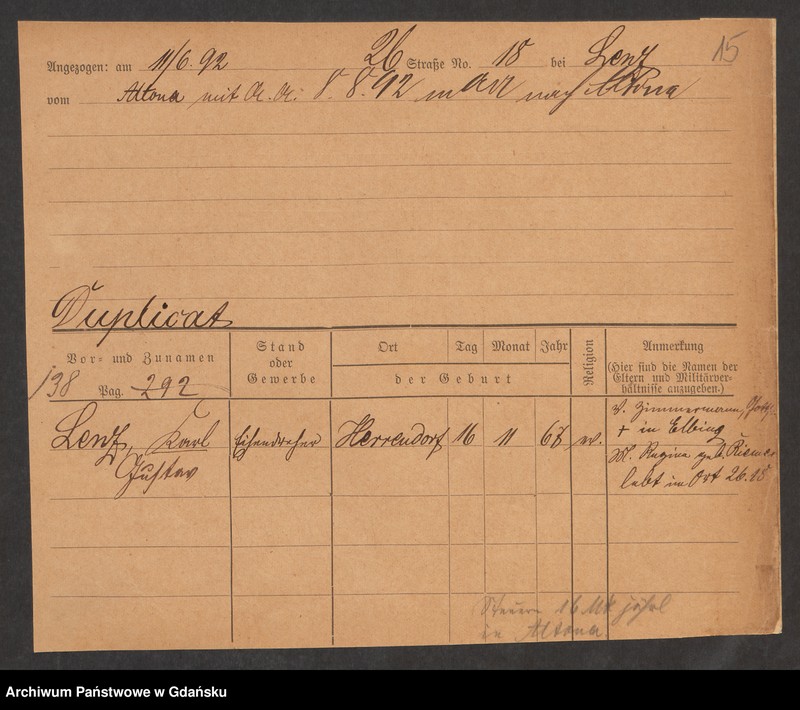 15
Angezogen: am 11/6. 92 26 Straße No. 18 bei Lenz
vom Altona mit A. A. 8. 8. 92 nach Altona
Duplicat
Vor- und Zunamen
138 Pag. 292
Stand
oder
Gewerbe
Ort Tag Monat Jahr
der Geburt
Religion
Anmerkung
(Hier sind die Namen der
Eltern und Militärver-
hältnisse anzugeben.)
Lenz, Karl
Gustav
Eisendreher
Herrendorf
16
11
67
ev.
V. Zimmermann, Gottf.
+ in Elbing
M. Regina geb. Riemer
lebt im Ort 26. 18
Steuern 16 Mk jährl
in Altona
Archiwum Państwowe w Gdańsku